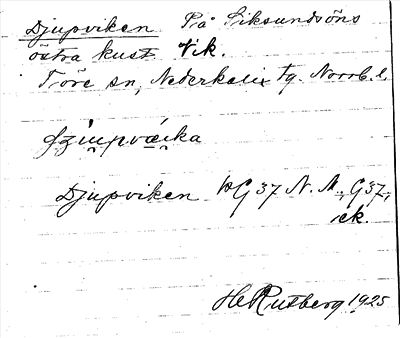 Djupviken På Siksundsöns
östra kust Vik.
Töre sn, Nederkalix tg. Norrb. l.
Djupviken WG37 N.M., G37,
ek.
H Rutberg 1925